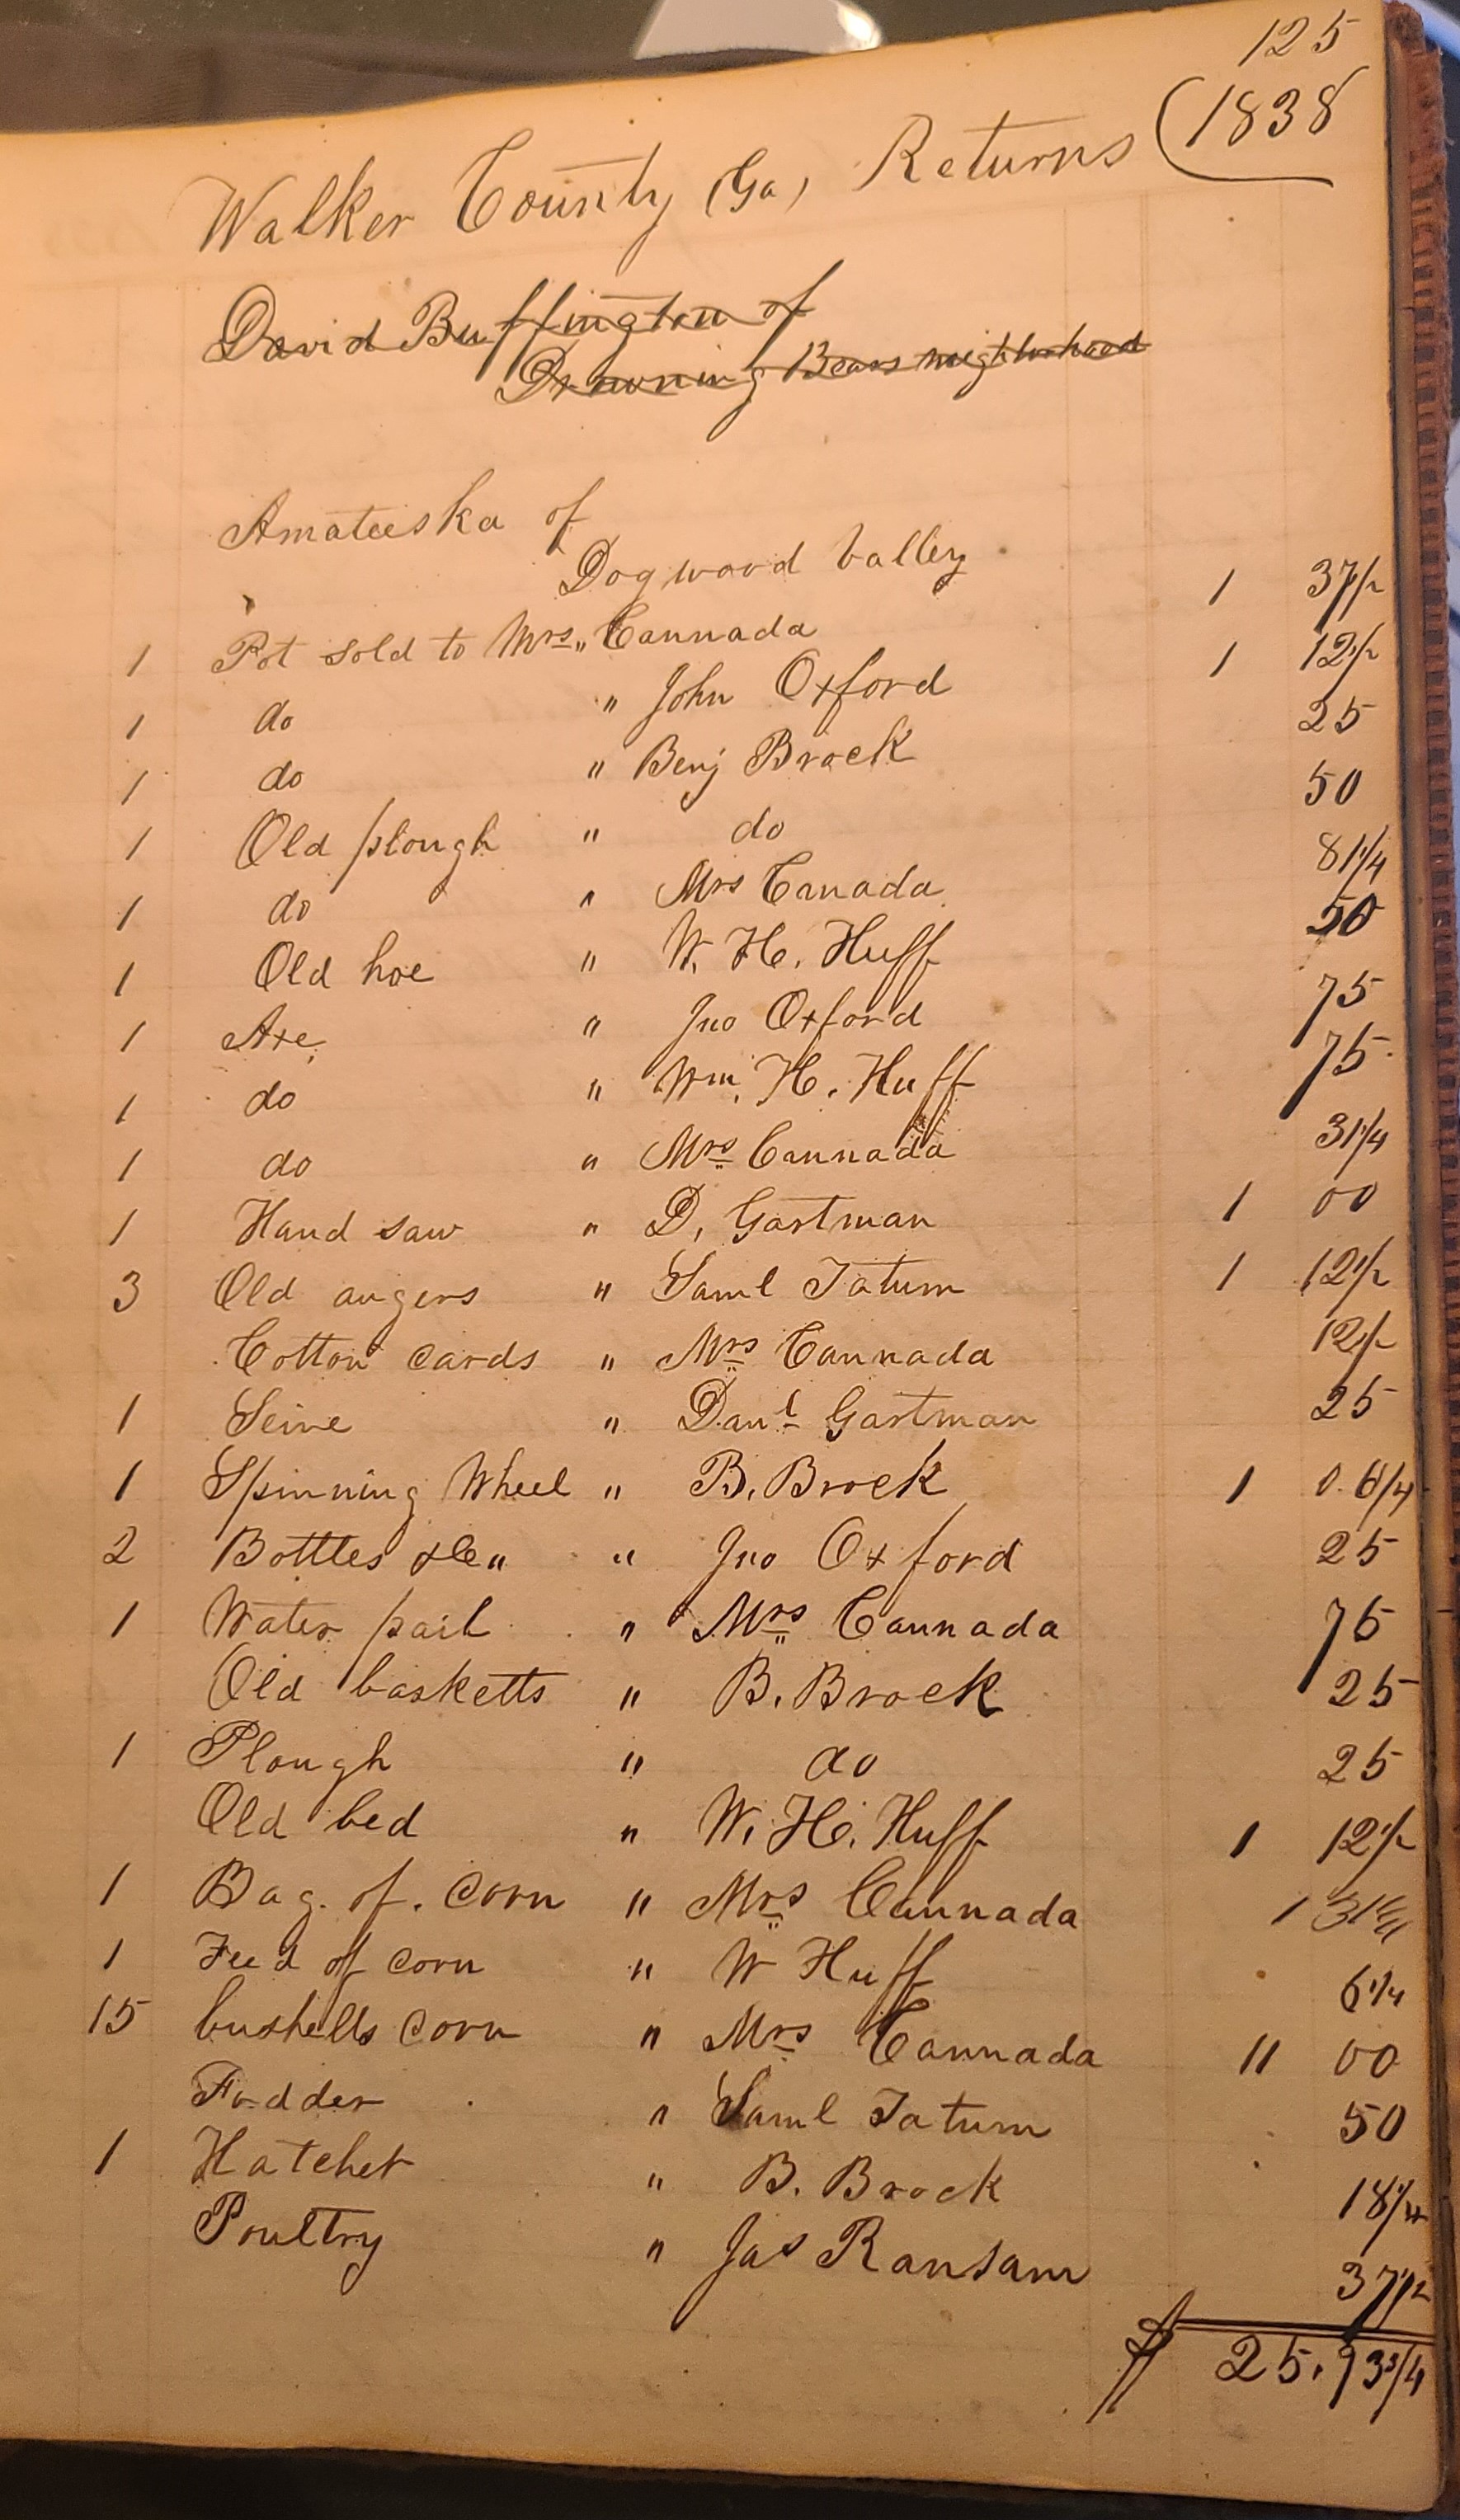 125
Walker County (Ga) Returns (1838
David Buffington of
Drowning Bears neighborhood
Amateeska of
Dogwood Valley
1 Pot sold to Mrs„ Cannada 1 37½
1 do " John Oxford 1 12½
1 do " Benj Brock 25
1 Old plough " do 50
1 do " Mrs Canada 81¼
1 Old hoe " W. H. Huff 50
1 Axe " Jno Oxford 75
1 do " Wm. H. Huff 75
1 do " Mrs Cannada 31¼
1 Hand saw " D. Gastman 1 00
3 Old augers " Saml Tatum 1 12½
Cotton cards " Mrs Cannada 12½
1 Seine " Danl Gastman 25
1 Spinning Wheel " B. Brock 1 0.6¼
2 Bottles &c„ " Jno Oxford 25
1 Water pail " Mrs Cannada 75
Old basketts " B. Brock 25
1 Plough " do 25
Old bed " W. H. Huff 1 12½
1 Bag. of. Corn " Mrs Cannada 1 31¼
1 Feed of corn " W Huff 6¼
15 bushells Corn " Mrs Cannada 11 00
Fodder " Saml Tatum 50
1 Hatchet " B. Brock 18¾
Poultry " Jas Ransam 37½
$ 25.93¾